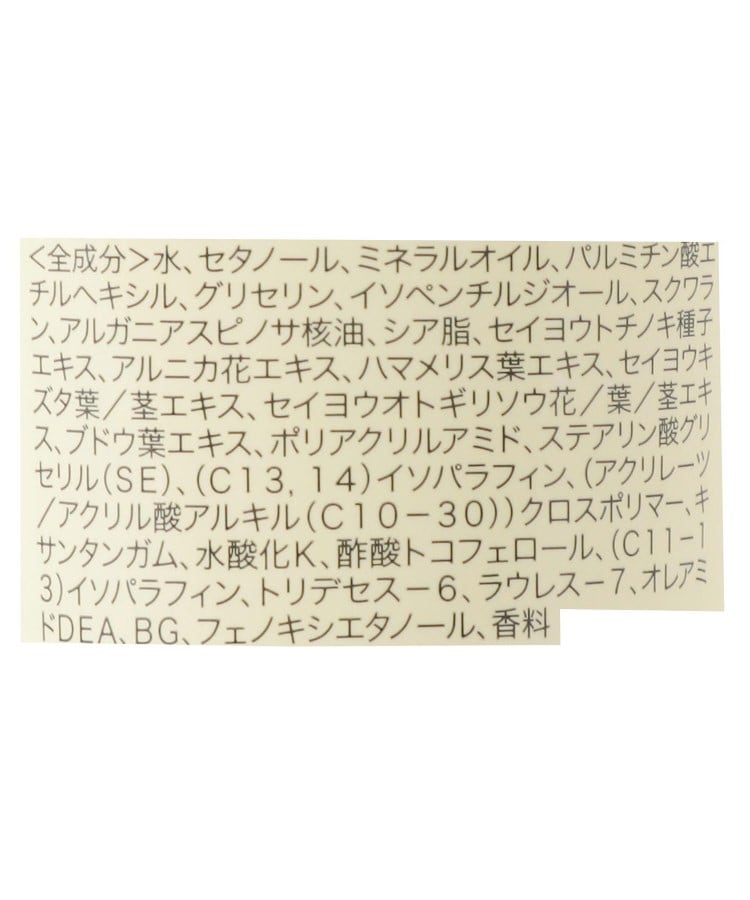 ＜全成分＞水、セタノール、ミネラルオイル、パルミチン酸エ
チルヘキシル、グリセリン、イソペンチルジオール、スクワラ
ン、アルガニアスピノサ核油、シア脂、セイヨウトチノキ種子
エキス、アルニカ花エキス、ハマメリス葉エキス、セイヨウキ
ズタ葉／茎エキス、セイヨウオトギリソウ花／葉／茎エキ
ス、ブドウ葉エキス、ポリアクリルアミド、ステアリン酸グリ
セリル(SE)、(C13, 14)イソパラフィン、(アクリレーツ
/アクリル酸アルキル(C10－30))クロスポリマー、キ
サンタンガム、水酸化K、酢酸トコフェロール、(C11-1
3)イソパラフィン、トリデセス－6、ラウレス－7、オレアミ
ドDEA、BG、フェノキシエタノール、香料